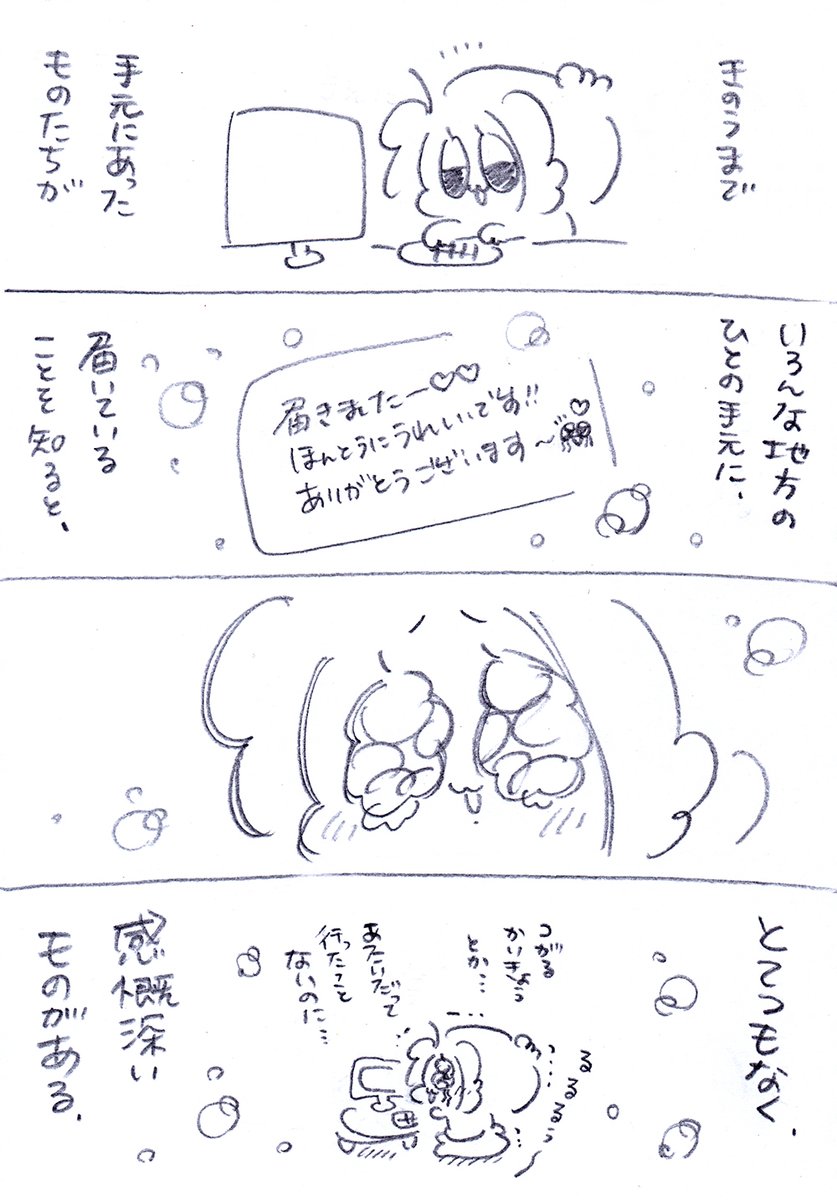 きのうまで
手元にあった
ものたちが
いろんな地方の
ひとの手元に、
届きましたー♡♡
ほんとうにうれしいです!!
ありがとうございます〜
届いている
ことを知ると、
とてつもなく、
つがる
かいきょう
とか…
あたいだって
行ったこと
ないのに…
感慨深い
ものがある。